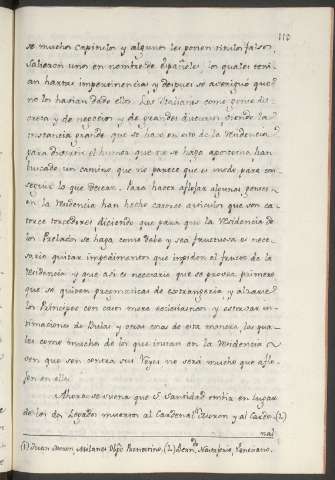 110
se muchos capitulos y algunos les ponen titulos falsos,
salieron unos en nombre de españoles los quales tení-
an hartas impertinencias, y despues se averiguó que
no los havian dado ellos. Los Italianos como gente dis-
creta y de negocios y de grandes discursos viendo la
instancia grande que se hace en esto de la Residencia
para divertir el humor que no se haga apostema han
buscado un camino, que no parece que es modo para con-
seguir lo que desean. Para hacer aflojar algunas gentes
en la Residencia han hecho catorce articulos que son ca-
torce torcedores, diciendo que para que la Residencia de
los Prelados se haga como debe y sea fructuosa es nece-
sario quitar impedimentos que impiden el fruto de la
Residencia y que asi es necesario que se provea primero
que se quiten pragmaticas de extrangeria y alzarse
los Principes con cosas mere eclesiasticas y estorvar in-
timaciones de Bulas y otras cosas de esta manera, los qua-
les como mucho de los que instan en la Residencia
ven que son contra sus Reyes no será mucho que aflo-
jen en ella.
Ahora se suena que S. Santidad embia en lugar
de los dos Legados muertos al Cardenal Moron y al Carde- (2)
nal
(1) Juan Moron, Milanes Obpo. (2) Bern.do Navagerio, Veneciano.